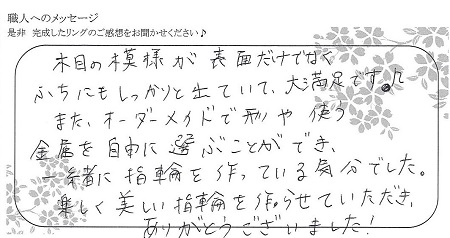 職人へのメッセージ
是非 完成したリングのご感想をお聞かせください♪
木目の模様が表面だけでなく
ふちにもしっかりと出ていて、大満足です。♫
また、オーダーメイドで形や使う
金属を自由に選ぶことができ、
一緒に指輪を作っている気分でした。
楽しく美しい指輪を作らせていただき、
ありがとうございました!